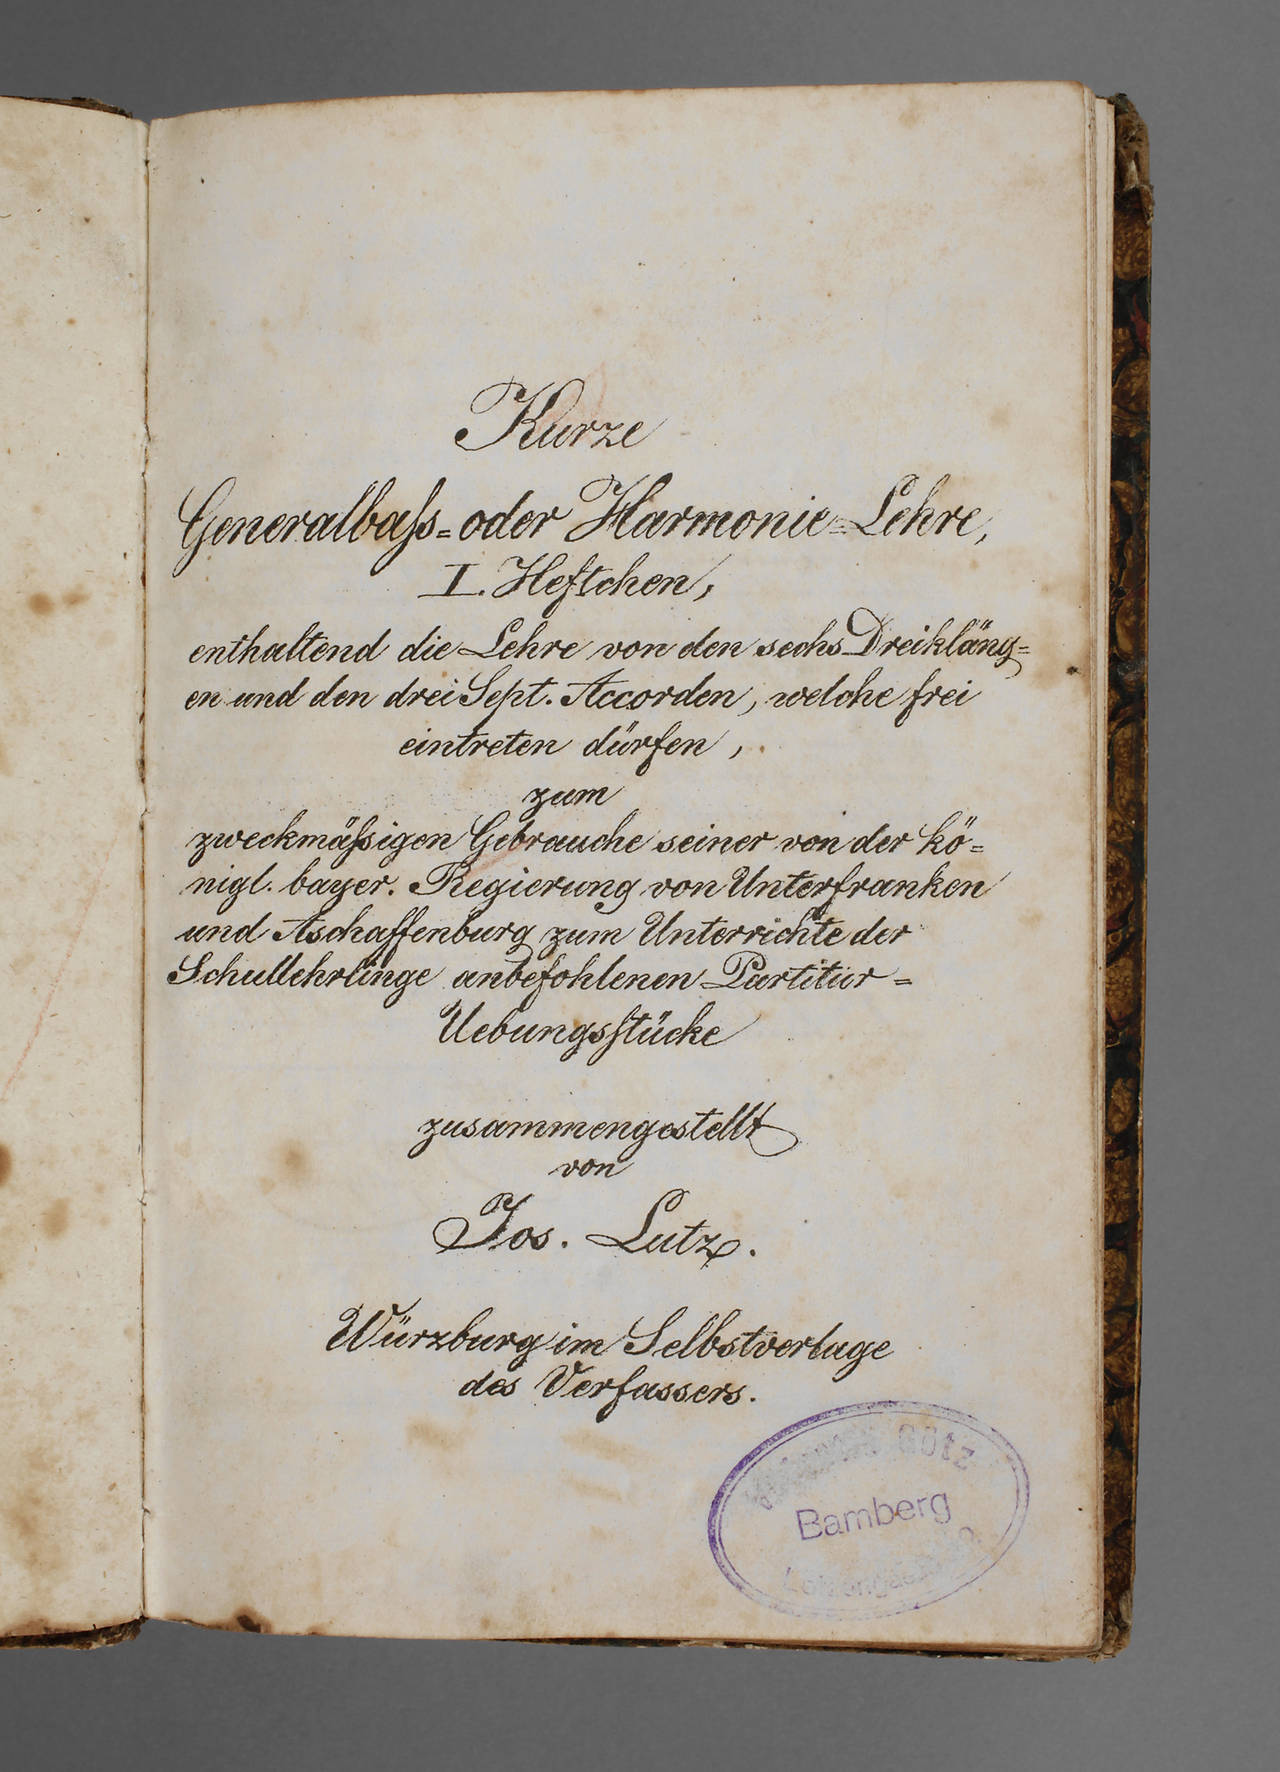 Kurze
Generalbaſs= oder Harmonie=Lehre,
I. Heftchen,
enthaltend die Lehre von den sechs Dreikläng=
en und den drei Sept. Accorden, welche frei
eintreten dürfen,
zum
zweckmäſsigen Gebrauche seiner von der kö=
nigl. bayer. Regierung von Unterfranken
und Aschaffenburg zum Unterrichte der
Schullehrlinge anbefohlenen Partitur=
Uebungsſtücke
zusammengestellt
von
Jos. Lutz.
Würzburg im Selbstverlage
des Verfassers.
Götz
Bamberg